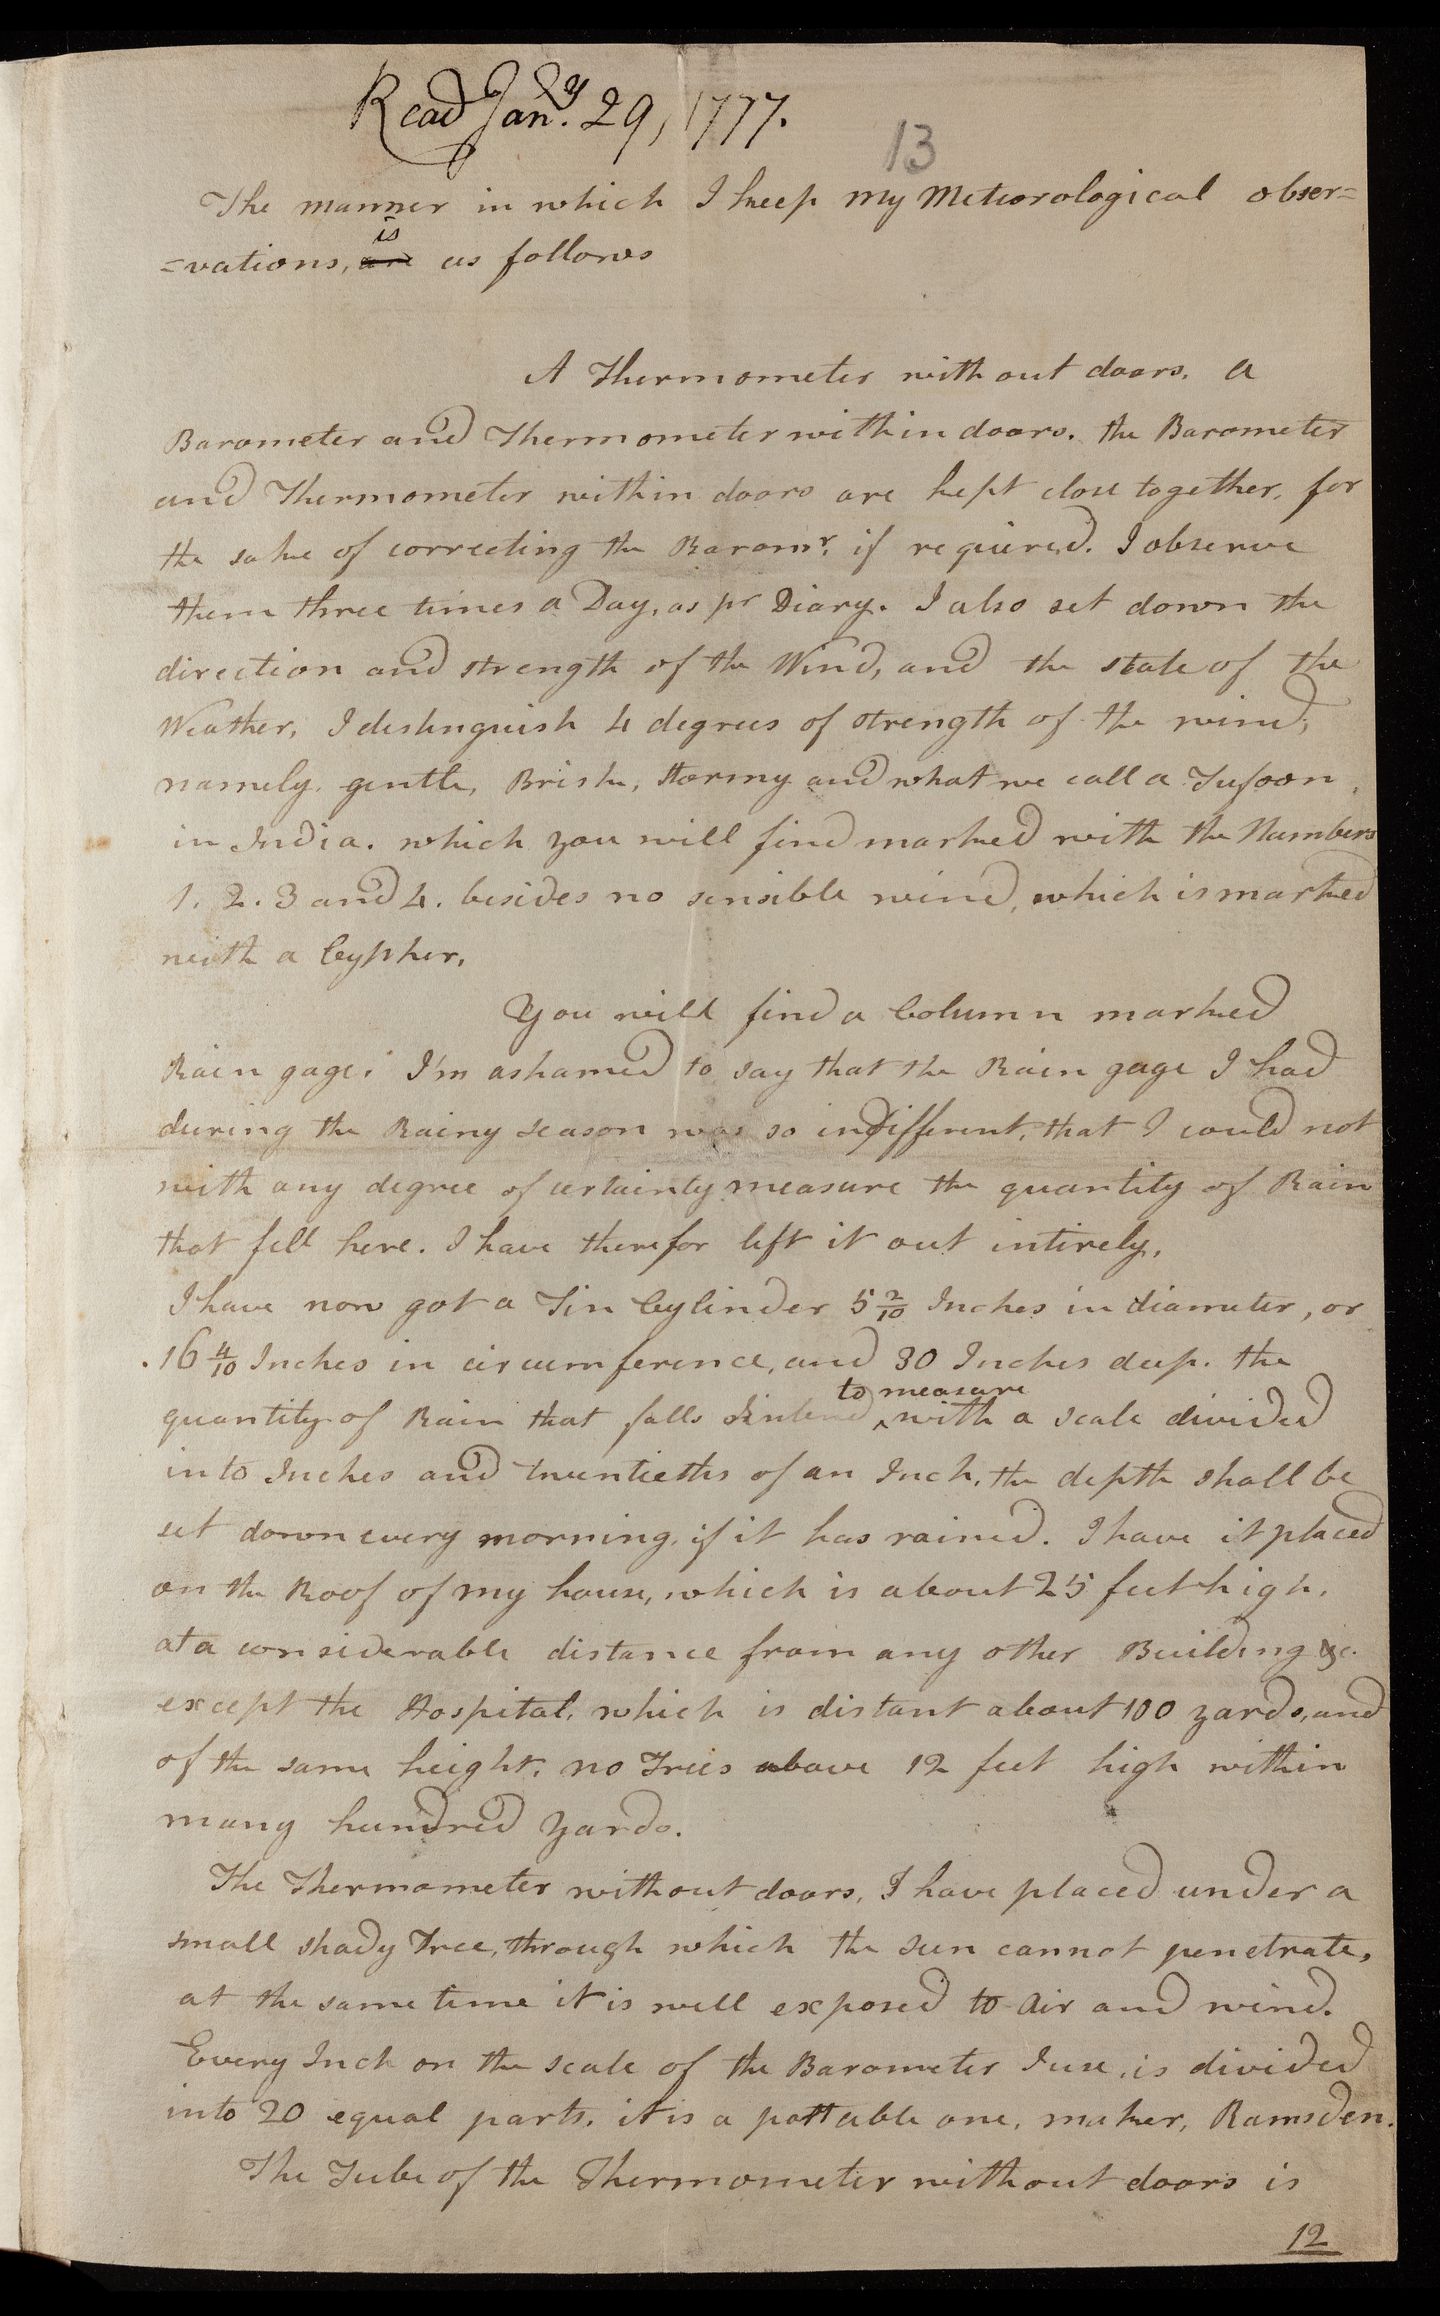 Read Jan.y 29, 1777.
13
The manner in which I keep my Meteorological obser=
is
=vations, are as follows
A Thermometer without doors. a
Barometer and Thermometer within doors. the Barometer
and Thermometer within doors are kept close together, for
the sake of correcting the Baromr. if required. I observe
them three times a Day, as pr Diary. I also set down the
direction and strength of the Wind, and the state of the
Weather, I destinguish 4 degrees of strength of the wind;
namely. gentle, Brisk, stormy and what we call a Tufoon
in India. which you will find marked with the Numbers
1. 2. 3 and 4. besides no sensible wind, which is marked
with a Cypher.
You will find a Column marked
Rain gage. I'm ashamed to say that the Rain gage I had
during the Rainy season was so indifferent, that I could not
with any degree of certainty measure the quantity of Rain
that fell here. I have therefor left it out intirely.
I have now got a Tin Cylinder 5 2/10 Inches in diameter, or
16 4/10 Inches in circumference, and 30 Inches deep. the
to measure
quantity of Rain that falls I intend ^ with a scale divided
into Inches and twentieths of an Inch, the depth shall be
set down every morning, if it has rained. I have it placed
on the Roof of my house, which is about 25 feet high,
at a considerable distance from any other Building &c.
except the Hospital, which is distant about 100 yards, and
of the same height. no Trees above 12 feet high within
many hundred yards.
The Thermometer without doors, I have placed under a
small shady Tree, through which the sun cannot penetrate,
at the same time it is well exposed to air and wind.
Every Inch on the scale of the Barometer I use, is divided
into 20 equal parts. it is a portable one, maker, Ramsden.
The Tube of the Thermometer without doors is
12